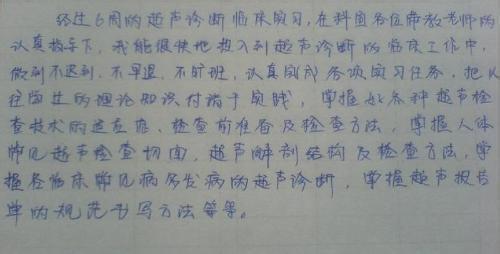 经过6周的超声诊断临床实习,在科室各位带教老师的
认真指导下,我能很快地投入到超声诊断的临床工作中,
做到不迟到,不早退,不旷班,认真完成各项实习任务,把以
往学过的理论知识付诸于实践,掌握好各种超声检
查技术的适应症、检查前准备及检查方法,掌握人体
常见超声检查切面,超声解剖结构及检查方法,掌
握各临床常见病多发病的超声诊断,掌握超声报告
单的规范书写方法等等。